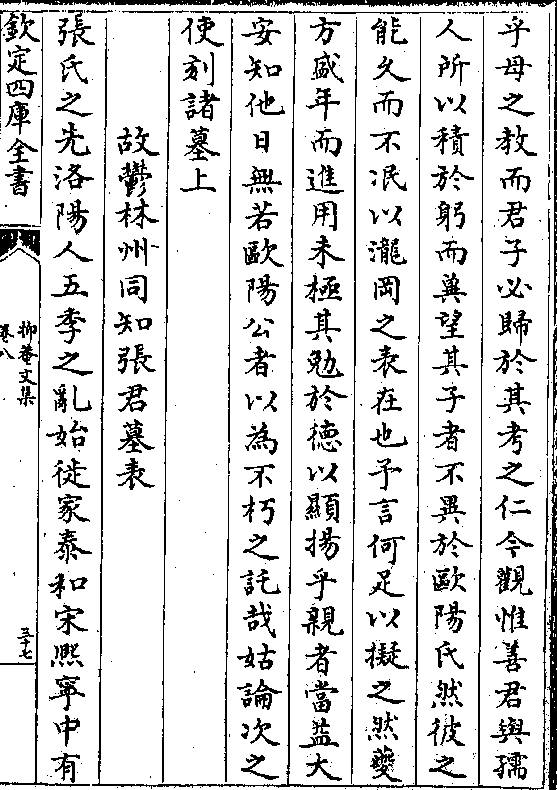 乎母之教而君子必歸於其考之仁今觀惟善君與孺
人所以積於躬而冀望其子者不異於歐陽氏然彼之
能久而不泯以瀧岡之表在也予言何足以擬之然夔
方盛年而進用未極其勉於德以顯揚乎親者當益大
安知他日無若歐陽公者以為不朽之託哉姑論次之
使刻諸墓上
故鬱林州同知張君墓表
張氏之先洛陽人五季之亂始徙家泰和宋熈寧中有
欽定四庫全書
抑菴文集
卷八
三十七